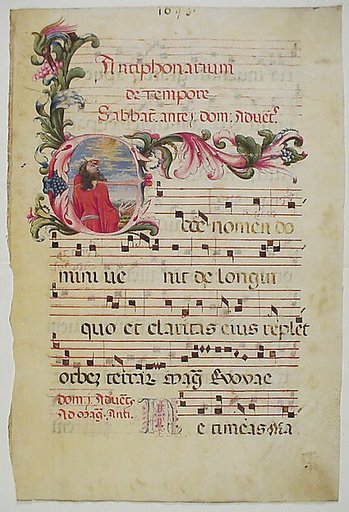 1693
Antiphonarium
de Tempore
Sabbat. ante j dom: Aduēt.
cce nomen do
mini ue nit de longin
quo et claritas eius replet
orbez terraz Mag̃ Evovae
dom: j. Aduēt.
Ad Mag. Anti.
N e timeas Ma